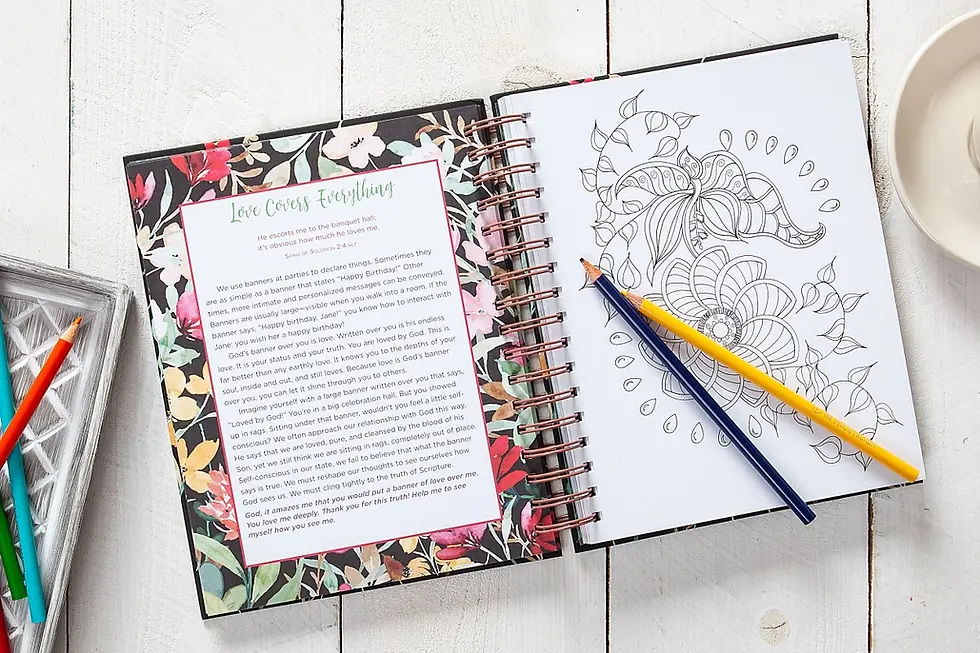 Love Covers Everything
He escorts me to the banquet hall;
it's obvious how much he loves me.
SONG OF SOLOMON 2:4 NLT
We use banners at parties to declare things. Sometimes they
are as simple as a banner that states "Happy Birthday!" Other
times, more intimate and personalized messages can be conveyed.
Banners are usually large—visible when you walk into a room. If the
banner says, "Happy birthday, Jane!" you know how to interact with
Jane: you wish her a happy birthday!
God's banner over you is love. Written over you is his endless
love. It is your status and your truth. You are loved by God. This is
far better than any earthly love. It knows you to the depths of your
soul, inside and out, and still loves. Because love is God's banner
over you, you can let it shine through you to others.
Imagine yourself with a large banner written over you that says,
"Loved by God!" You're in a big celebration hall. But you showed
up in rags. Sitting under that banner, wouldn't you feel a little self-
conscious? We often approach our relationship with God this way.
He says that we are loved, pure, and cleansed by the blood of his
Son, yet we still think we are sitting in rags, completely out of place.
Self-conscious in our state, we fail to believe that what the banner
says is true. We must reshape our thoughts to see ourselves how
God sees us. We must cling tightly to the truth of Scripture.
God, it amazes me that you would put a banner of love over me.
You love me deeply. Thank you for this truth! Help me to see
myself how you see me.